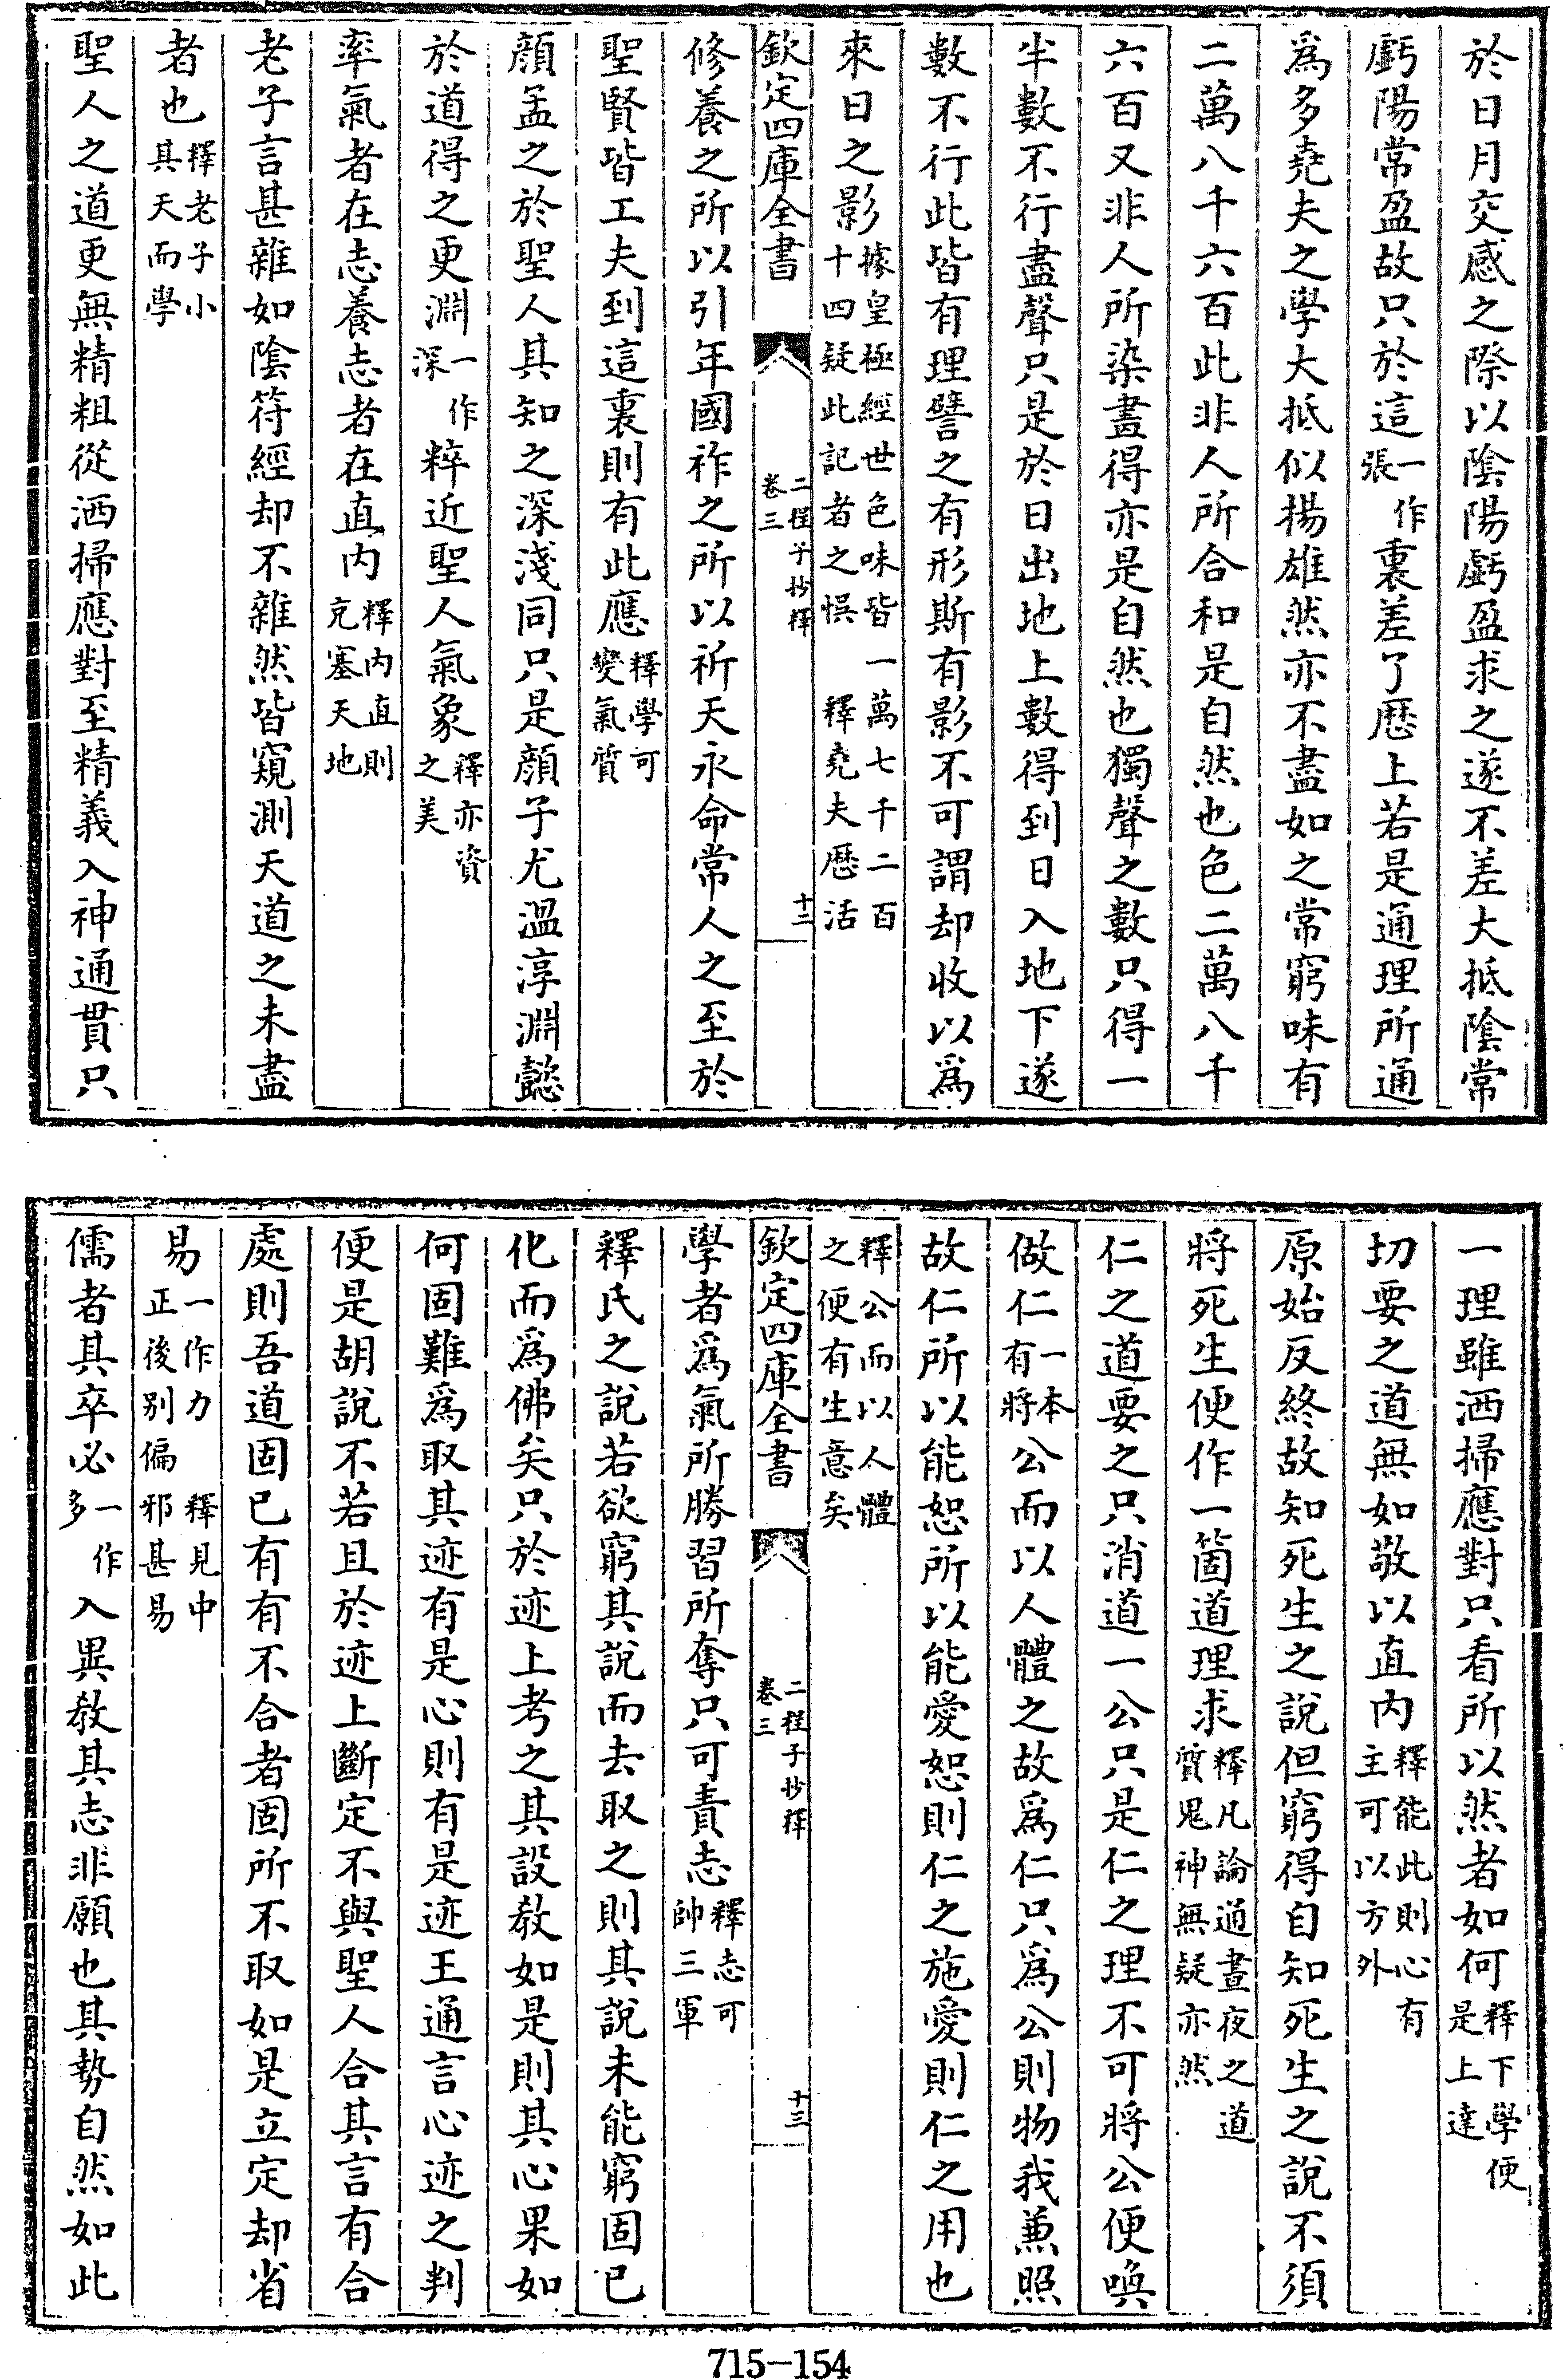 於日月交感之際以陰陽虧盈求之遂不差大抵陰常
虧陽常盈故只於這一作張裏差了厯上若是通理所通
爲多堯夫之學大抵似揚雄然亦不盡如之常窮味有
二萬八千六百此非人所合和是自然也色二萬八千
六百又非人所染畫得亦是自然也獨聲之數只得一
半數不行盡聲只是於日出地上數得到日入地下遂
數不行此皆有理譬之有形斯有影不可謂却收以爲
來日之影據皇極經世色味皆一萬七千二百十四疑此記者之悞釋堯夫厯活
欽定四庫全書 二程子抄釋卷三 十二
修養之所以引年國祚之所以祈天永命常人之至於
聖賢皆工夫到這裏則有此應釋學可變氣質
顔孟之於聖人其知之深淺同只是顔子尤溫淳淵懿
於道得之更淵一作深粹近聖人氣象釋亦資之美
率氣者在志養志者在直内釋内直則充塞天地
老子言甚雜如陰符經却不雜然皆窺測天道之未盡
者也釋老子小其天而學
聖人之道更無精粗從洒掃應對至精義入神通貫只
一理雖洒掃應對只看所以然者如何釋下學便是上達
切要之道無如敬以直内釋能此則心有主可以方外
原始反終故知死生之說但窮得自知死生之說不須
將死生便作一箇道理求釋凡論通晝夜之道質鬼神無疑亦然
仁之道要之只消道一公只是仁之理不可將公便喚
做仁一本有將公而以人體之故爲仁只爲公則物我兼照
故仁所以能恕所以能愛恕則仁之施愛則仁之用也
釋公而以人體之便有生意矣
欽定四庫全書 二程子抄釋卷三 十三
學者爲氣所勝習所奪只可責志釋志可帥三軍
釋氏之說若欲窮其說而去取之則其說未能窮固已
化而爲佛矣只於迹上考之其設教如是則其心果如
何固難爲取其迹有是心則有是迹王通言心迹之判
便是胡說不若且於迹上斷定不與聖人合其言有合
處則吾道固已有有不合者固所不取如是立定却省
易一作力釋見中正後别偏邪甚易
儒者其卒必一作多入異教其志非願也其勢自然如此
715-154